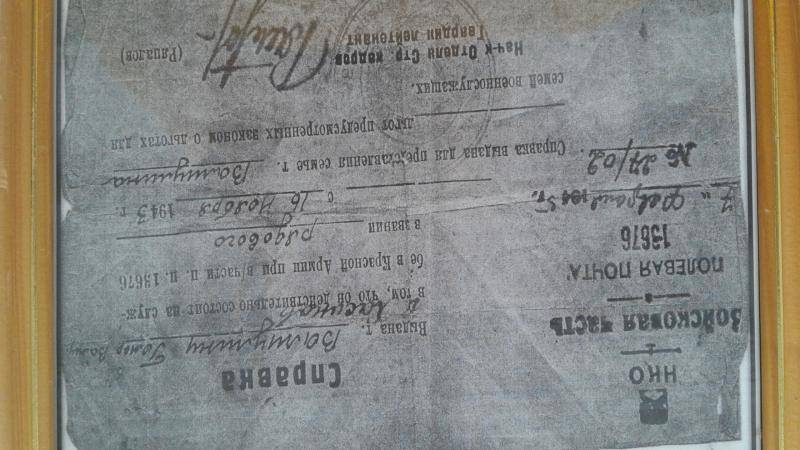 НКО
Войсковая часть
ПОЛЕВАЯ ПОЧТА
15676
7 " февраля 1945 г.
№ 27/02
Справка
Выдана т. Вамушину
в том, что он действительно состоит на служ-
бе в Красной Армии при в/части п. п. 15676
в звании рядового
с 16 ноября 1943 г
Справка выдана для представления семье т. Вамушина
льгот предусмотренных законом о льготах для
семей военнослужащих.
Нач-к Отдела Стр. кадров
Гвардии лейтенант
(Рацалов)